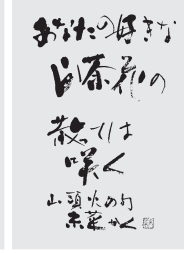 あなたの好きな
山茶花の
散っては
咲く
山頭火の句